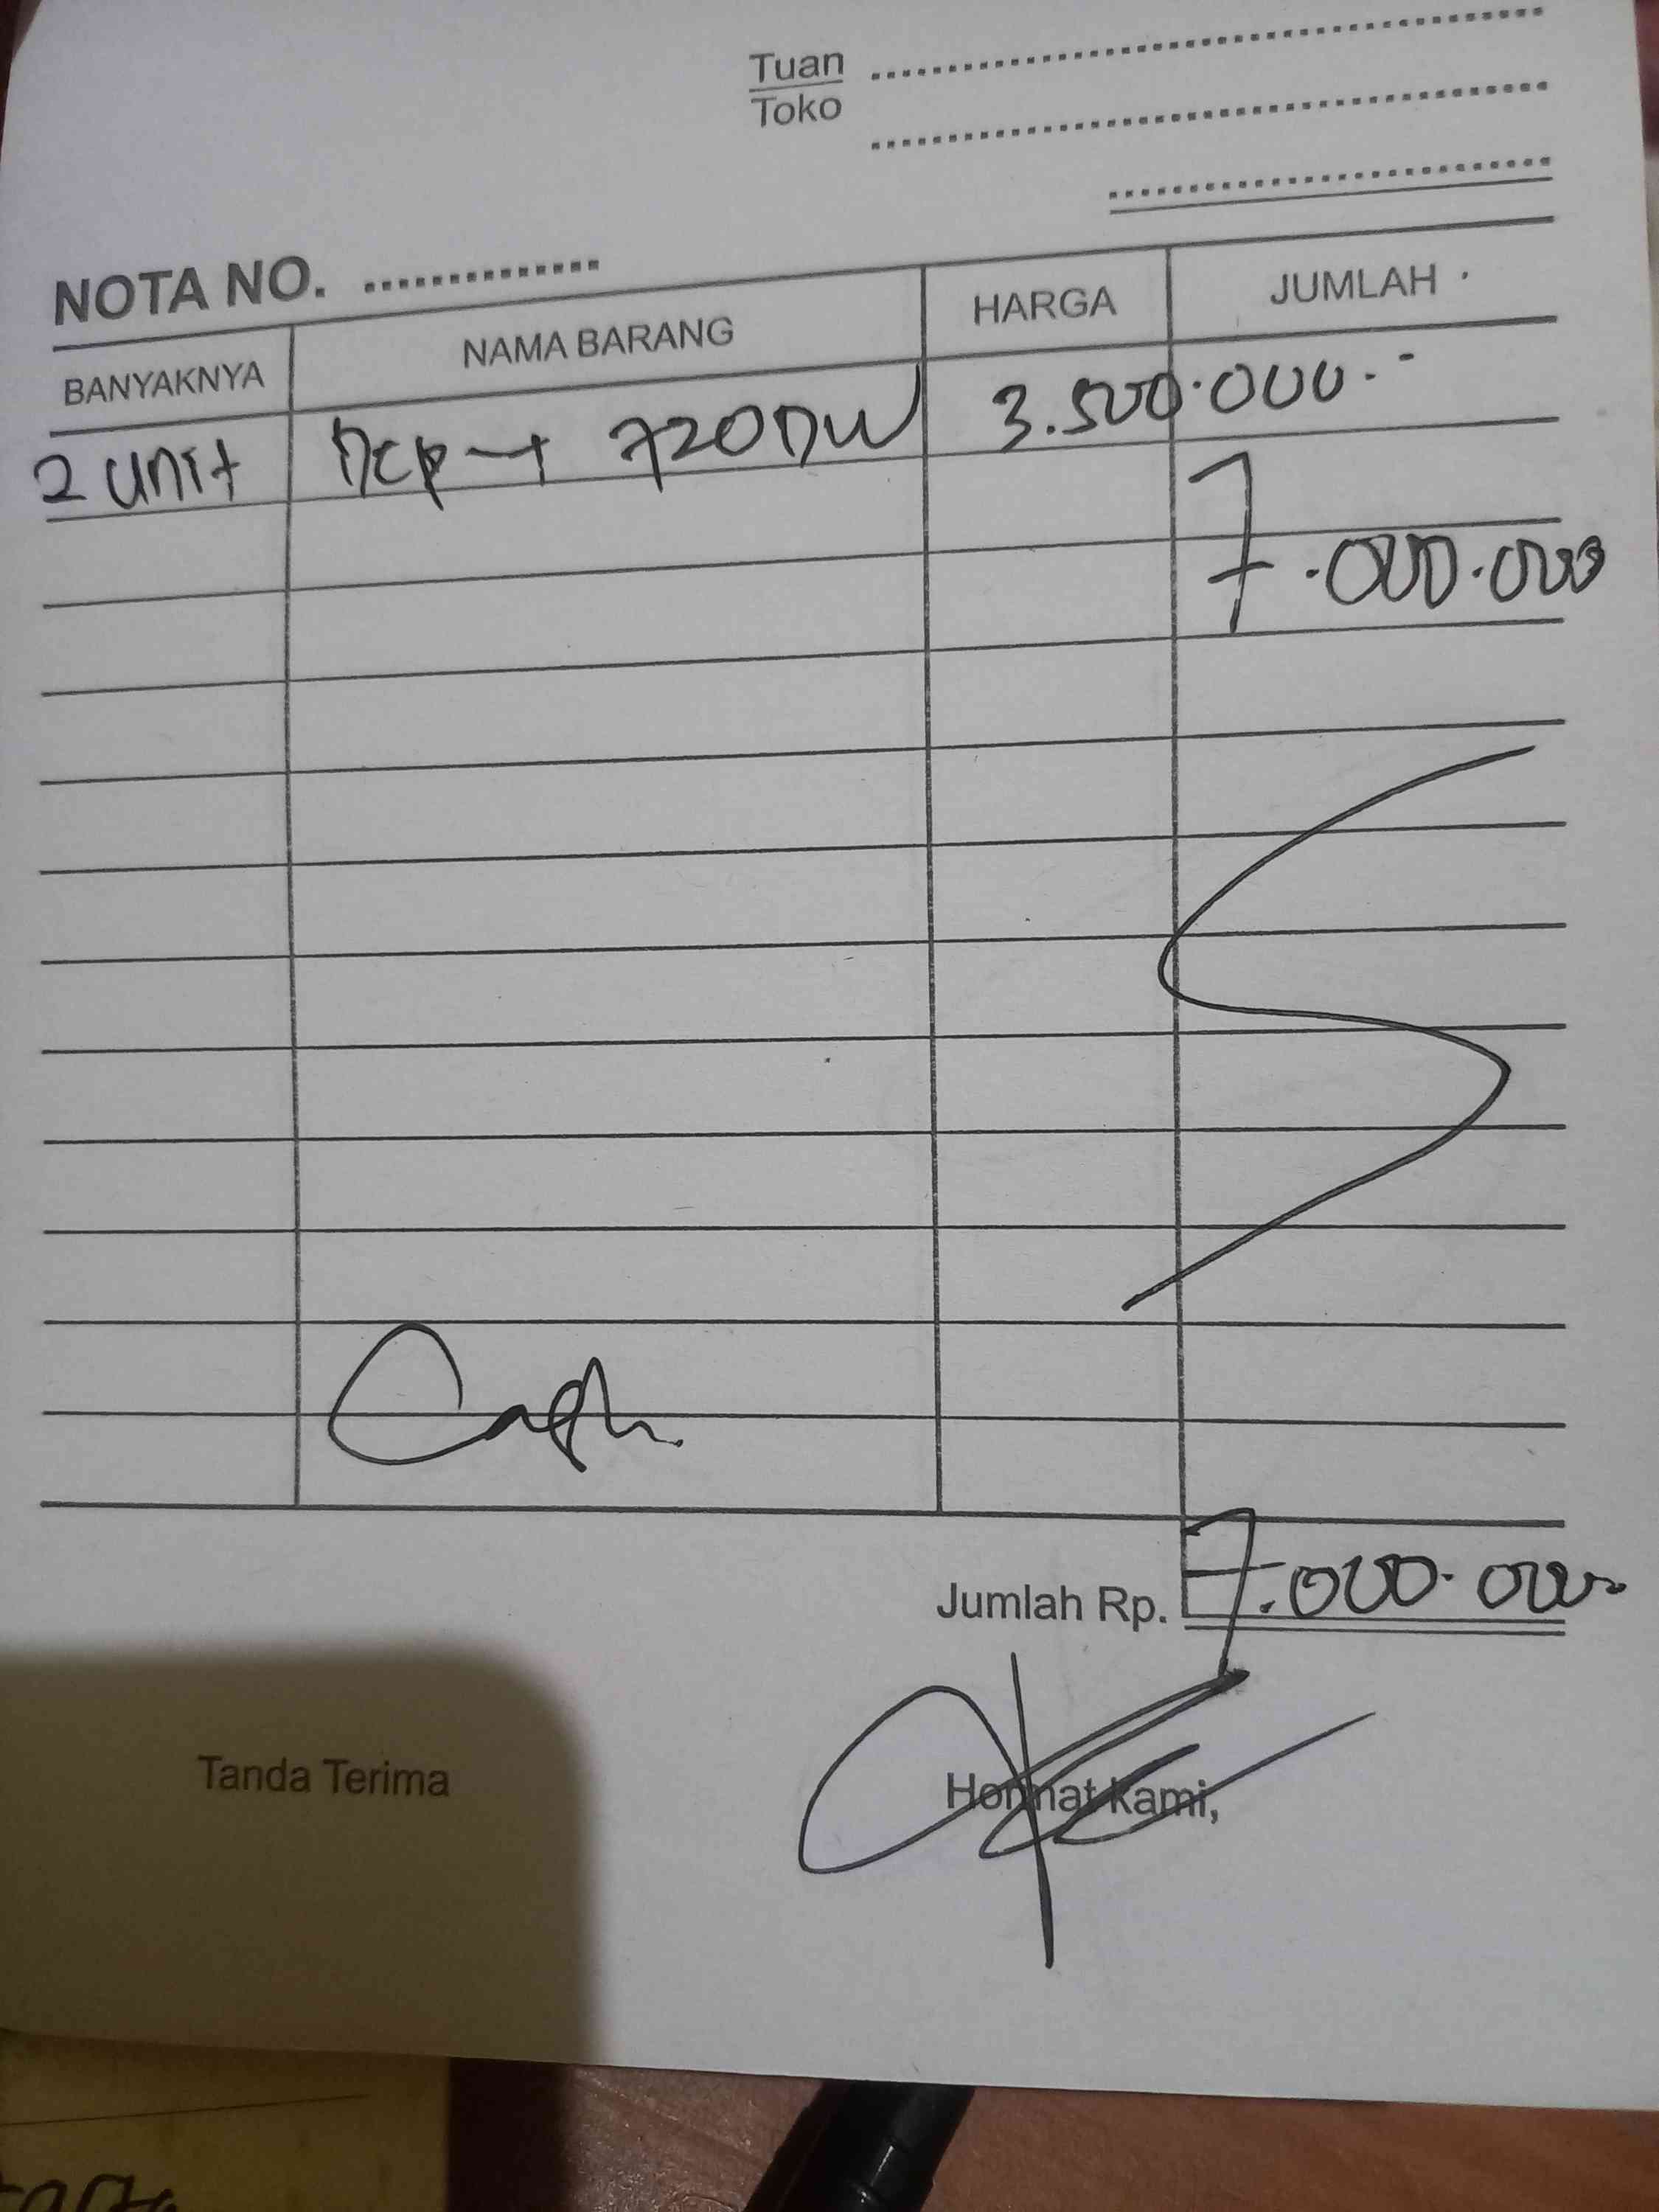 Tuan
Toko
NOTA NO.
BANYAKNYA NAMA BARANG HARGA JUMLAH
2 unit DCP-T 720DW 3.500.000.-
7.000.000
Cash
Jumlah Rp. 7.000.000
Tanda Terima Hormat kami,